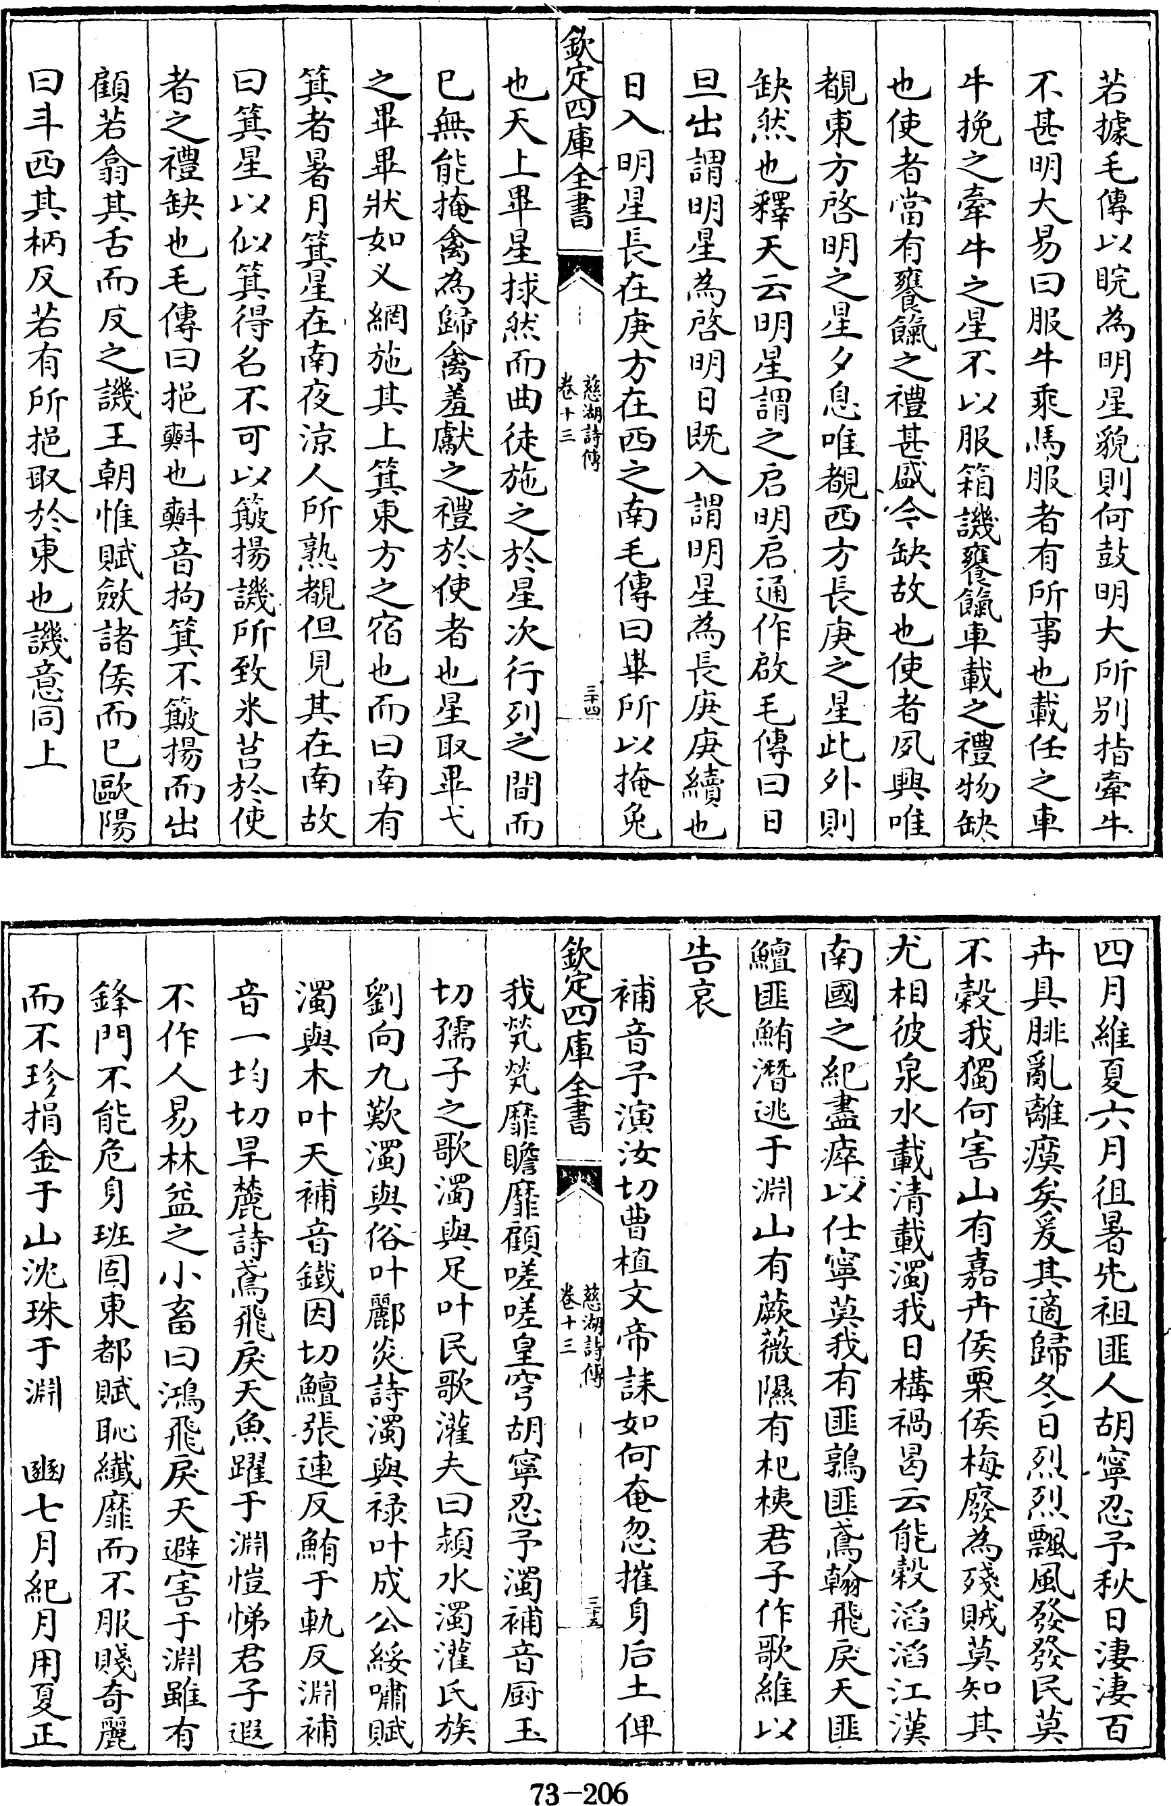 若據毛傳以睆為明星貌則何鼓明大所别指牽牛
不甚明大易曰服牛乘馬服者有所事也載任之車
牛挽之牽牛之星不以服箱譏饔餼車載之禮物缺
也使者當有饔餼之禮甚盛今缺故也使者夙興唯
覩東方啓明之星夕息唯覩西方長庚之星此外則
缺然也釋天云明星謂之启明启通作啟毛傳曰日
旦出謂明星為啓明日既入謂明星為長庚庚續也
日入明星長在庚方在西之南毛傳曰畢所以掩兔
欽定四庫全書
慈湖詩傳
卷十三
三十四
也天上畢星捄然而曲徒施之於星次行列之間而
已無能掩禽為歸禽羞獻之禮於使者也星取畢弋
之畢畢狀如乂網施其上箕東方之宿也而曰南有
箕者暑月箕星在南夜涼人所熟覩但見其在南故
曰箕星以似箕得名不可以簸揚譏所致米莒於使
者之禮缺也毛傳曰挹㪺也㪺音拘箕不簸揚而出
顧若翕其舌而反之譏王朝惟賦斂諸侯而已歐陽
曰斗西其柄反若有所挹取於東也譏意同上
四月維夏六月徂暑先祖匪人胡寧忍予秋日淒淒百
卉具腓亂離瘼矣爰其適歸冬日烈烈飄風發發民莫
不穀我獨何害山有嘉卉侯栗侯梅廢為殘賊莫知其
尤相彼泉水載清載濁我日構禍曷云能穀滔滔江漢
南國之紀盡瘁以仕寧莫我有匪鶉匪鳶翰飛戾天匪
鱣匪鮪潛逃于淵山有蕨薇隰有杞桋君子作歌維以
告哀
補音予演汝切曹植文帝誄如何奄忽摧身后土俾
欽定四庫全書
慈湖詩傳
卷十三
三十五
我煢煢靡瞻靡顧嗟嗟皇穹胡寧忍予濁補音厨玉
切孺子之歌濁與足叶民歌灌夫曰潁水濁灌氏族
劉向九歎濁與俗叶酈炎詩濁與祿叶成公綏嘯賦
濁與木叶天補音鐵因切鱣張連反鮪于軌反淵補
音一均切旱麓詩鳶飛戾天魚躍于淵愷悌君子遐
不作人易林益之小畜曰鴻飛戾天避害于淵雖有
鋒門不能危身班固東都賦恥纖靡而不服賤奇麗
而不珍捐金于山沈珠于淵　豳七月紀月用夏正
73-206